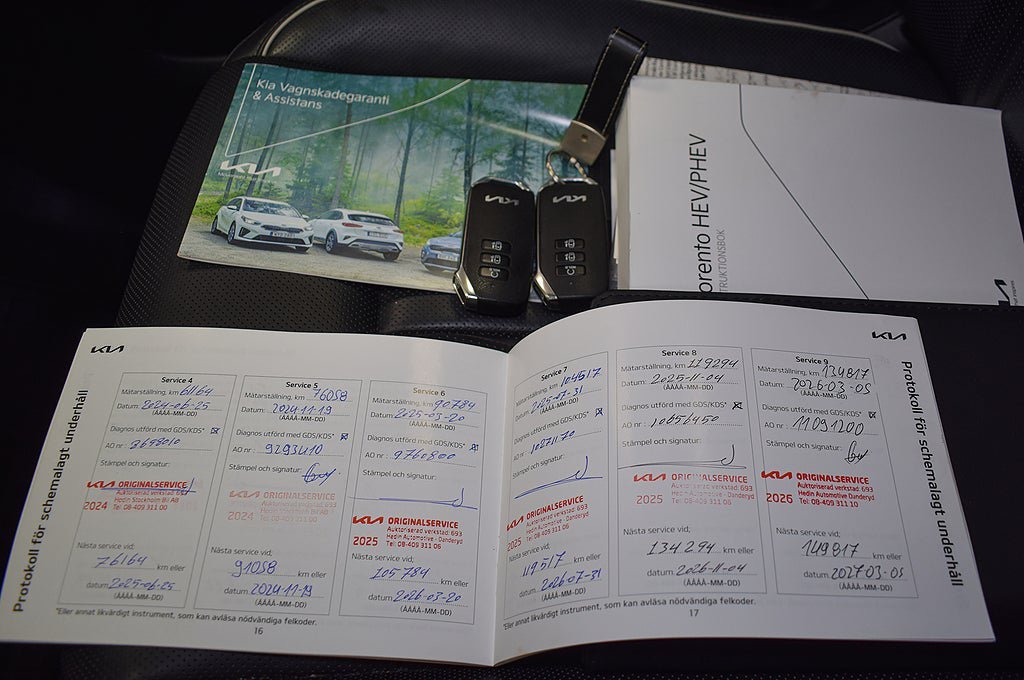 Kia Vagnskadegaranti
& Assistans
KIA
KIA
KIA
orento HEV/PHEV
TRUKTIONSBOK
KIA
Protokoll för schemalagt underhåll
Service 4
Mätarställning, km 61164
Datum: 2024-06-25
(ÅÅÅÅ-MM-DD)
Diagnos utförd med GDS/KDS* ☒
AO nr: 8658010
Stämpel och signatur:
KIA ORIGINALSERVICE
Auktoriserad verkstad: 693
Hedin Stockholm Bil AB
2024 Tel: 08-409 311 00
Nästa service vid;
76164 km eller
datum: 2025-06-25
(ÅÅÅÅ-MM-DD)
Service 5
Mätarställning, km 76058
Datum: 2024-11-19
(ÅÅÅÅ-MM-DD)
Diagnos utförd med GDS/KDS* ☒
AO nr: 9293410
Stämpel och signatur:
KIA ORIGINALSERVICE
Auktoriserad verkstad: 693
Hedin Stockholm Bil AB
2024 Tel: 08-409 311 00
Nästa service vid;
91058 km eller
datum: 2024-11-19
(ÅÅÅÅ-MM-DD)
Service 6
Mätarställning, km 90784
Datum: 2025-03-20
(ÅÅÅÅ-MM-DD)
Diagnos utförd med GDS/KDS* ☒
AO nr: 9760800
Stämpel och signatur:
KIA ORIGINALSERVICE
Auktoriserad verkstad: 693
Hedin Automotive - Danderyd
2025 Tel: 08-409 311 06
Nästa service vid;
105784 km eller
datum: 2026-03-20
(ÅÅÅÅ-MM-DD)
*Eller annat likvärdigt instrument, som kan avläsa nödvändiga felkoder.
16
KIA
Service 7
Mätarställning, km 104517
Datum: 2025-07-31
(ÅÅÅÅ-MM-DD)
Diagnos utförd med GDS/KDS* ☒
AO nr: 10271170
Stämpel och signatur:
KIA ORIGINALSERVICE
Auktoriserad verkstad: 693
Hedin Automotive - Danderyd
2025 Tel: 08-409 311 06
Nästa service vid;
119517 km eller
datum: 2026-07-31
(ÅÅÅÅ-MM-DD)
Service 8
Mätarställning, km 119294
Datum: 2025-11-04
(ÅÅÅÅ-MM-DD)
Diagnos utförd med GDS/KDS* ☒
AO nr: 10656450
Stämpel och signatur:
KIA ORIGINALSERVICE
Auktoriserad verkstad: 693
2025 Hedin Automotive - Danderyd
Tel: 08-409 311 06
Nästa service vid;
134294 km eller
datum: 2026-11-04
(ÅÅÅÅ-MM-DD)
Service 9
Mätarställning, km 134817
Datum: 2026-03-05
(ÅÅÅÅ-MM-DD)
Diagnos utförd med GDS/KDS* ☒
AO nr: 11091200
Stämpel och signatur:
KIA ORIGINALSERVICE
Auktoriserad verkstad: 693
2026 Hedin Automotive Danderyd
Tel: 08-409 311 10
Nästa service vid;
149817 km eller
datum: 2027-03-05
(ÅÅÅÅ-MM-DD)
*Eller annat likvärdigt instrument, som kan avläsa nödvändiga felkoder.
17
Protokoll för schemalagt underhåll